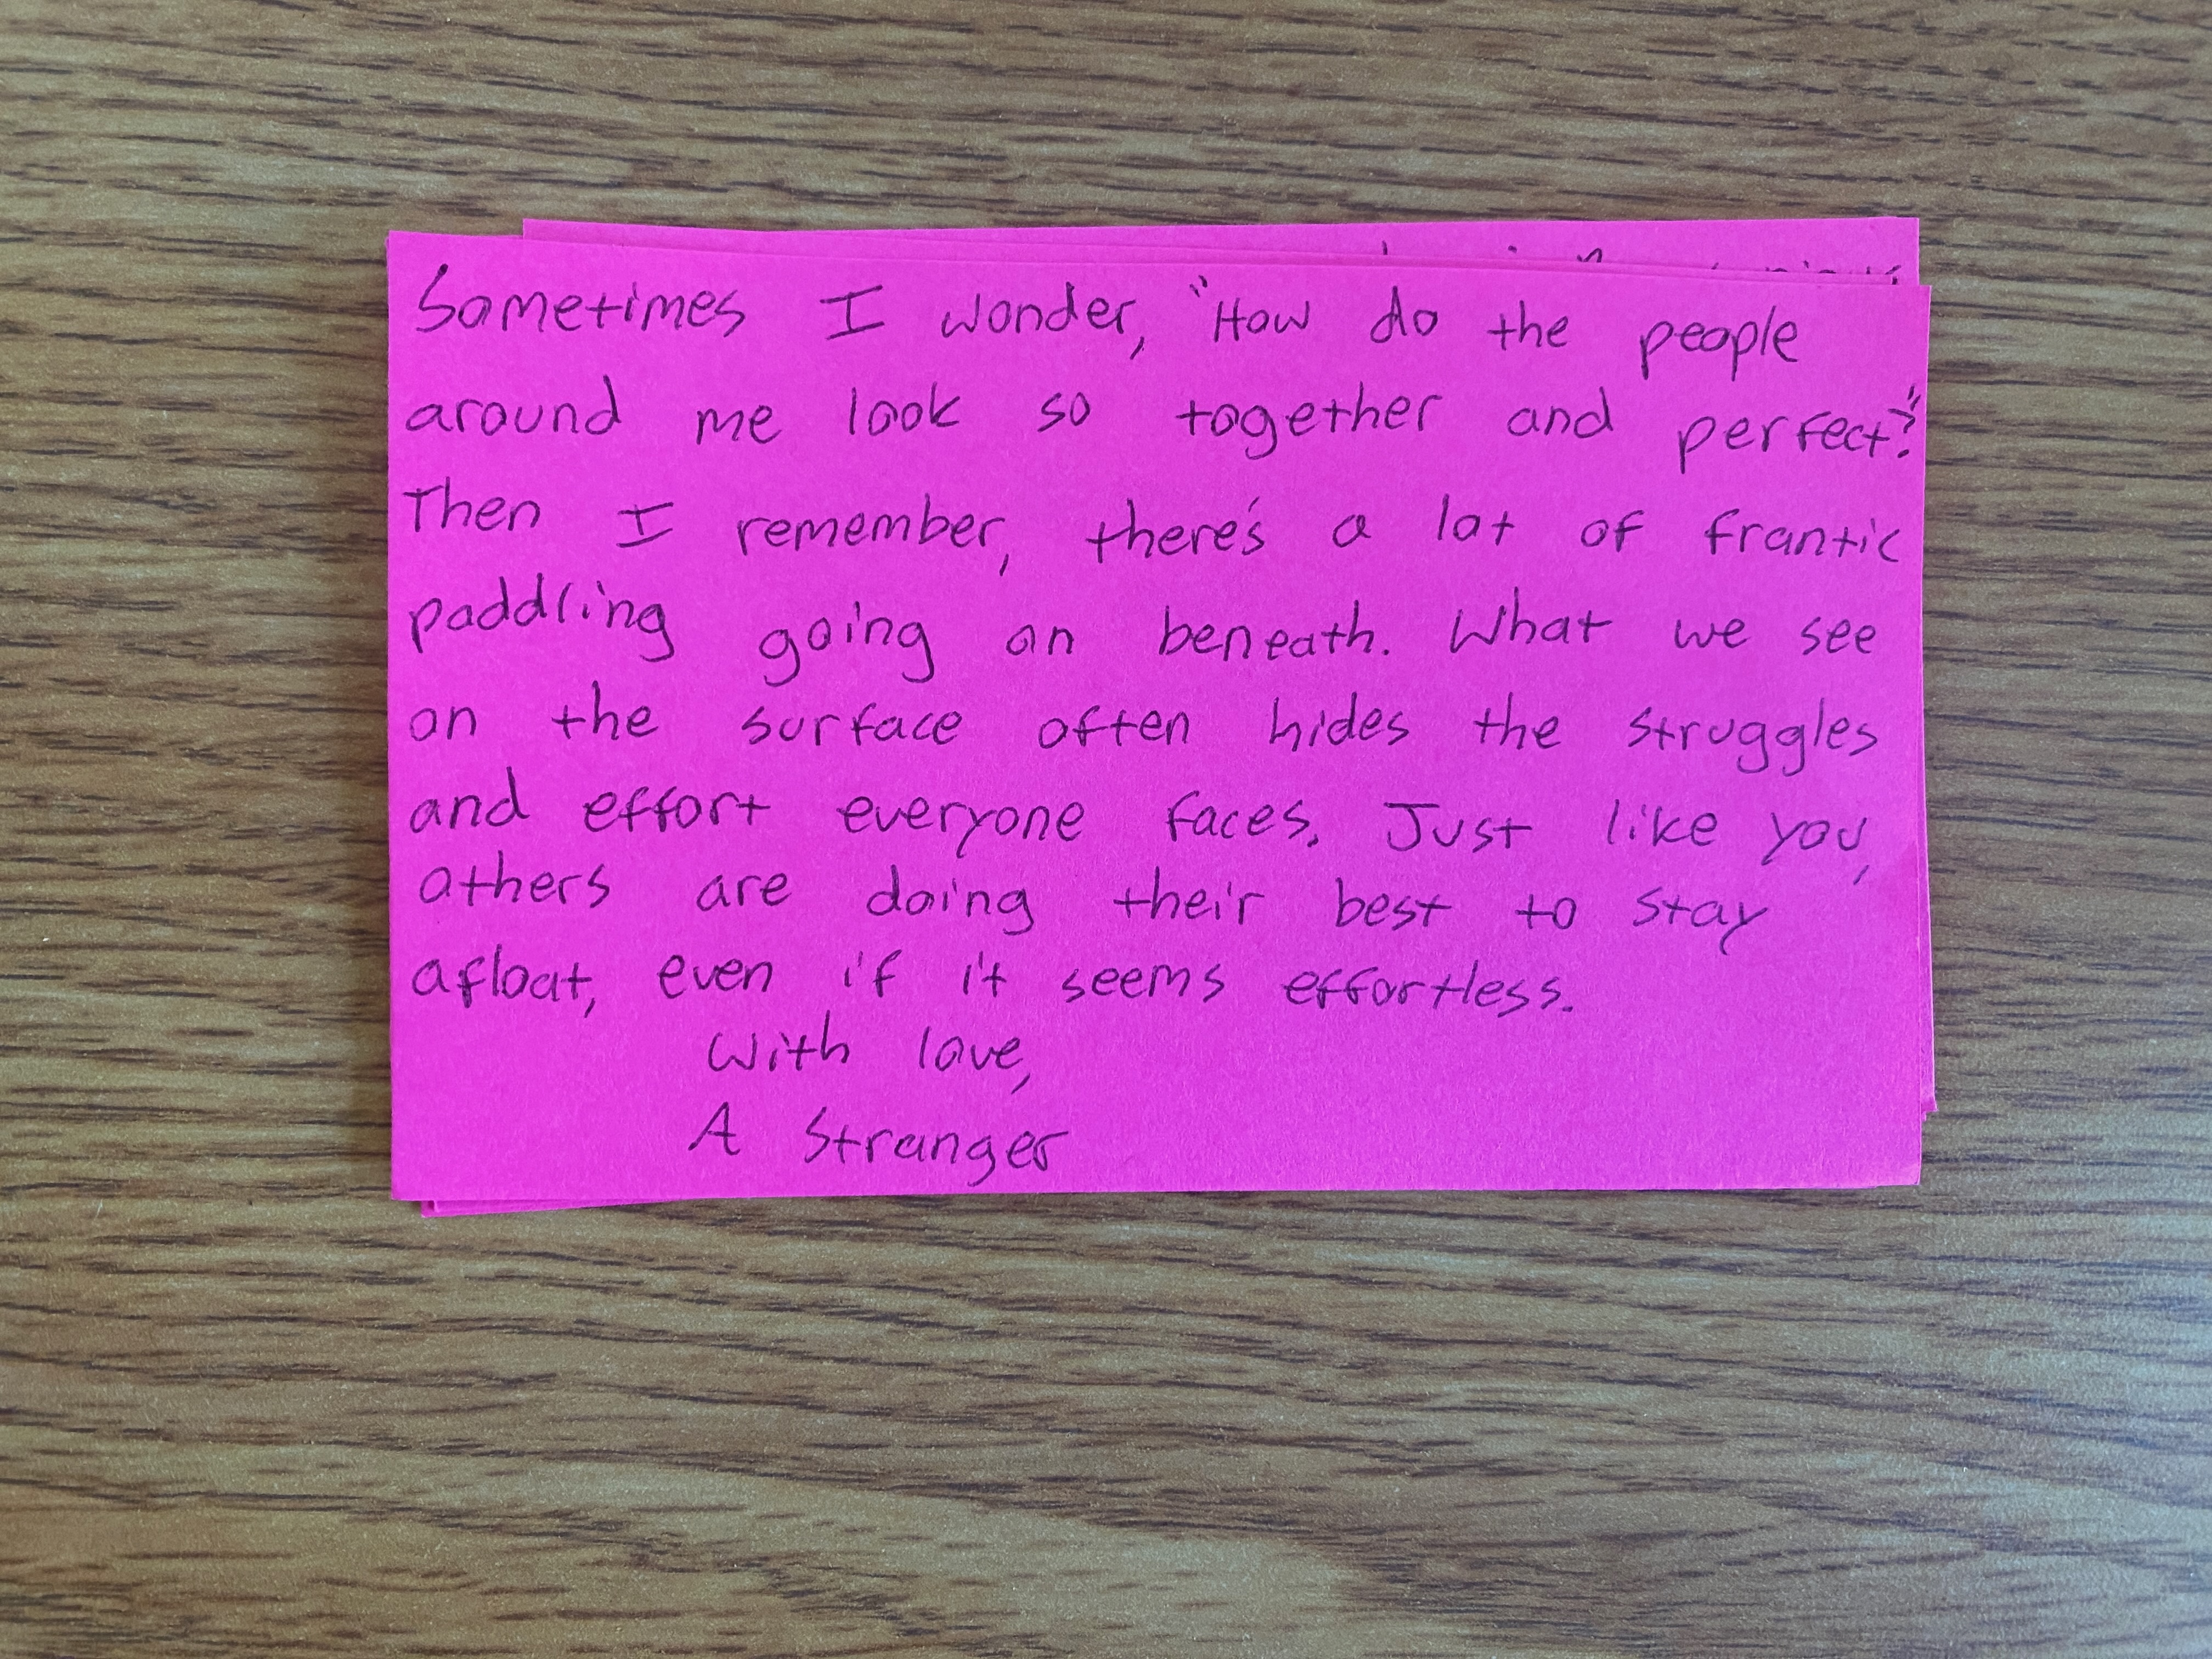 Sometimes I wonder, "How do the people
around me look so together and perfect?"
Then I remember, there's a lot of frantic
paddling going on beneath. What we see
on the surface often hides the struggles
and effort everyone faces. Just like you,
others are doing their best to stay
afloat, even if it seems effortless.
With love,
A Stranger